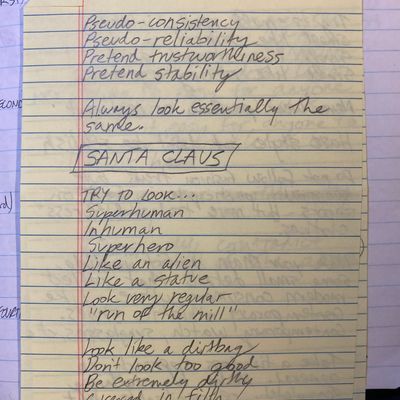 Pseudo-consistency
Pseudo-reliability
Pretend trustworthiness
Pretend stability
Always look essentially the
same.
SANTA CLAUS
TRY TO LOOK...
Superhuman
Inhuman
Superhero
Like an alien
Like a statue
Look very regular
"run of the mill"
Look like a dirtbag
Don't look too good
Be extremely dirty
in filth